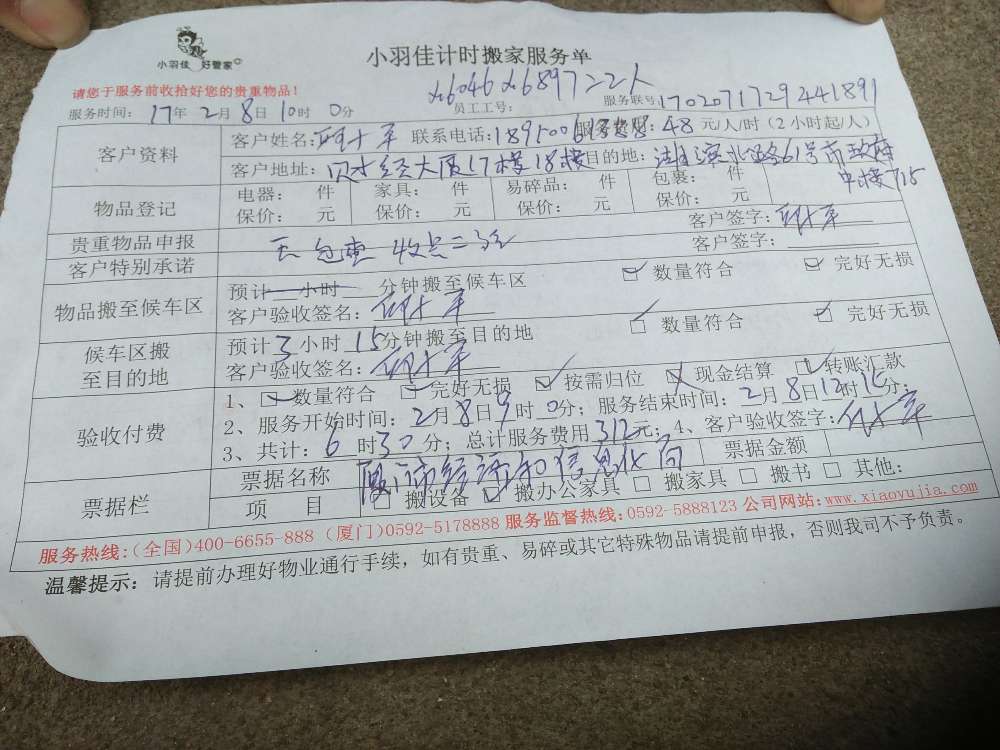 小羽佳 好管家
小羽佳计时搬家服务单
请您于服务前收拾好您的贵重物品！
x6046 x6897 二2人
服务时间： 17年 2月 8日 10时 0分 员工工号： 服务联号 1702071729441891
客户资料 客户姓名： 联系电话：1895006 48元/人/时（2小时起/人）
客户地址： 大厦17楼18楼 目的地： 61号市政府
中楼715
物品登记 电器： 件 家具： 件 易碎品： 件 包裹： 件
保价： 元 保价： 元 保价： 元 保价： 元
贵重物品申报 客户签字：
客户特别承诺 无 包重 客户签字：
物品搬至候车区 预计 小时 分钟搬至候车区 数量符合 完好无损
客户验收签名：
候车区搬至目的地 预计3小时15分钟搬至目的地 数量符合 完好无损
客户验收签名：
验收付费 1、 数量符合 完好无损 按需归位 现金结算 转账汇款
2、服务开始时间：2月8日9时0分；服务结束时间：2月8日12时15分；
3、共计：6时30分；总计服务费用312元；4、客户验收签字：
票据栏 票据名称 厦门市经济和信息化局 票据金额
项 目 搬设备 搬办公家具 搬家具 搬书 其他：
服务热线：(全国)400-6655-888 (厦门)0592-5178888 服务监督热线：0592-5888123 公司网站：www.xiaoyujia.com
温馨提示：请提前办理好物业通行手续，如有贵重、易碎或其它特殊物品请提前申报，否则我司不予负责。